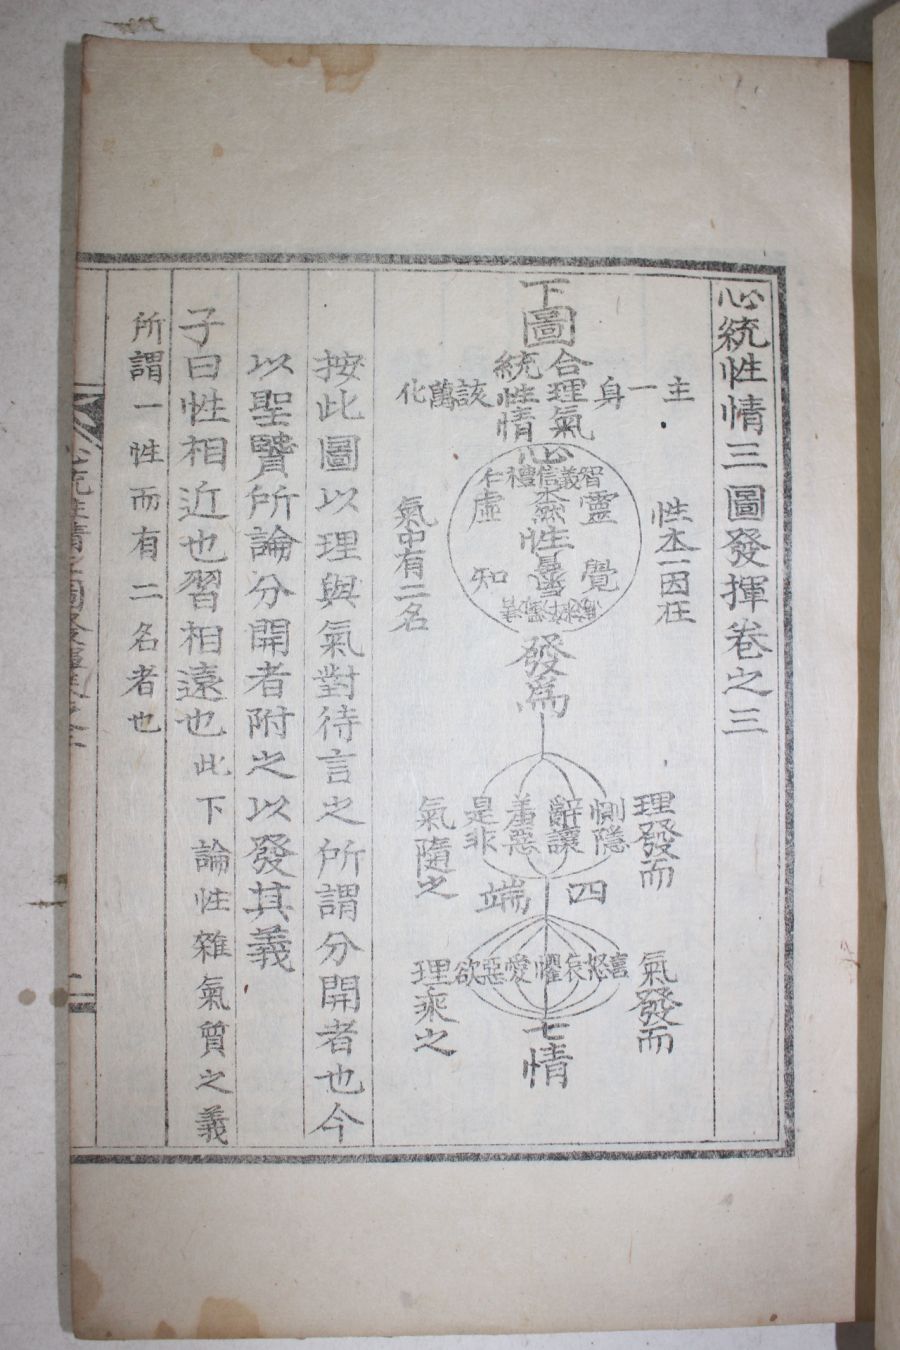 心統性情三圖發揮卷之三
下圖
主一身
合理氣
統性情
該萬化
心
性本一因在
氣中有二名
智義信禮仁
本然性
靈覺
虛知
氣質
發爲
理發而
惻隱
辭讓
羞惡
是非
氣隨之
四端
氣發而
喜怒哀懼愛惡欲
理乘之
七情
按此圖以理與氣對待言之所謂分開者也今
以聖賢所論分開者附之以發其義
子曰性相近也習相遠也此下論性雜氣質之義
所謂一性而有二名者也